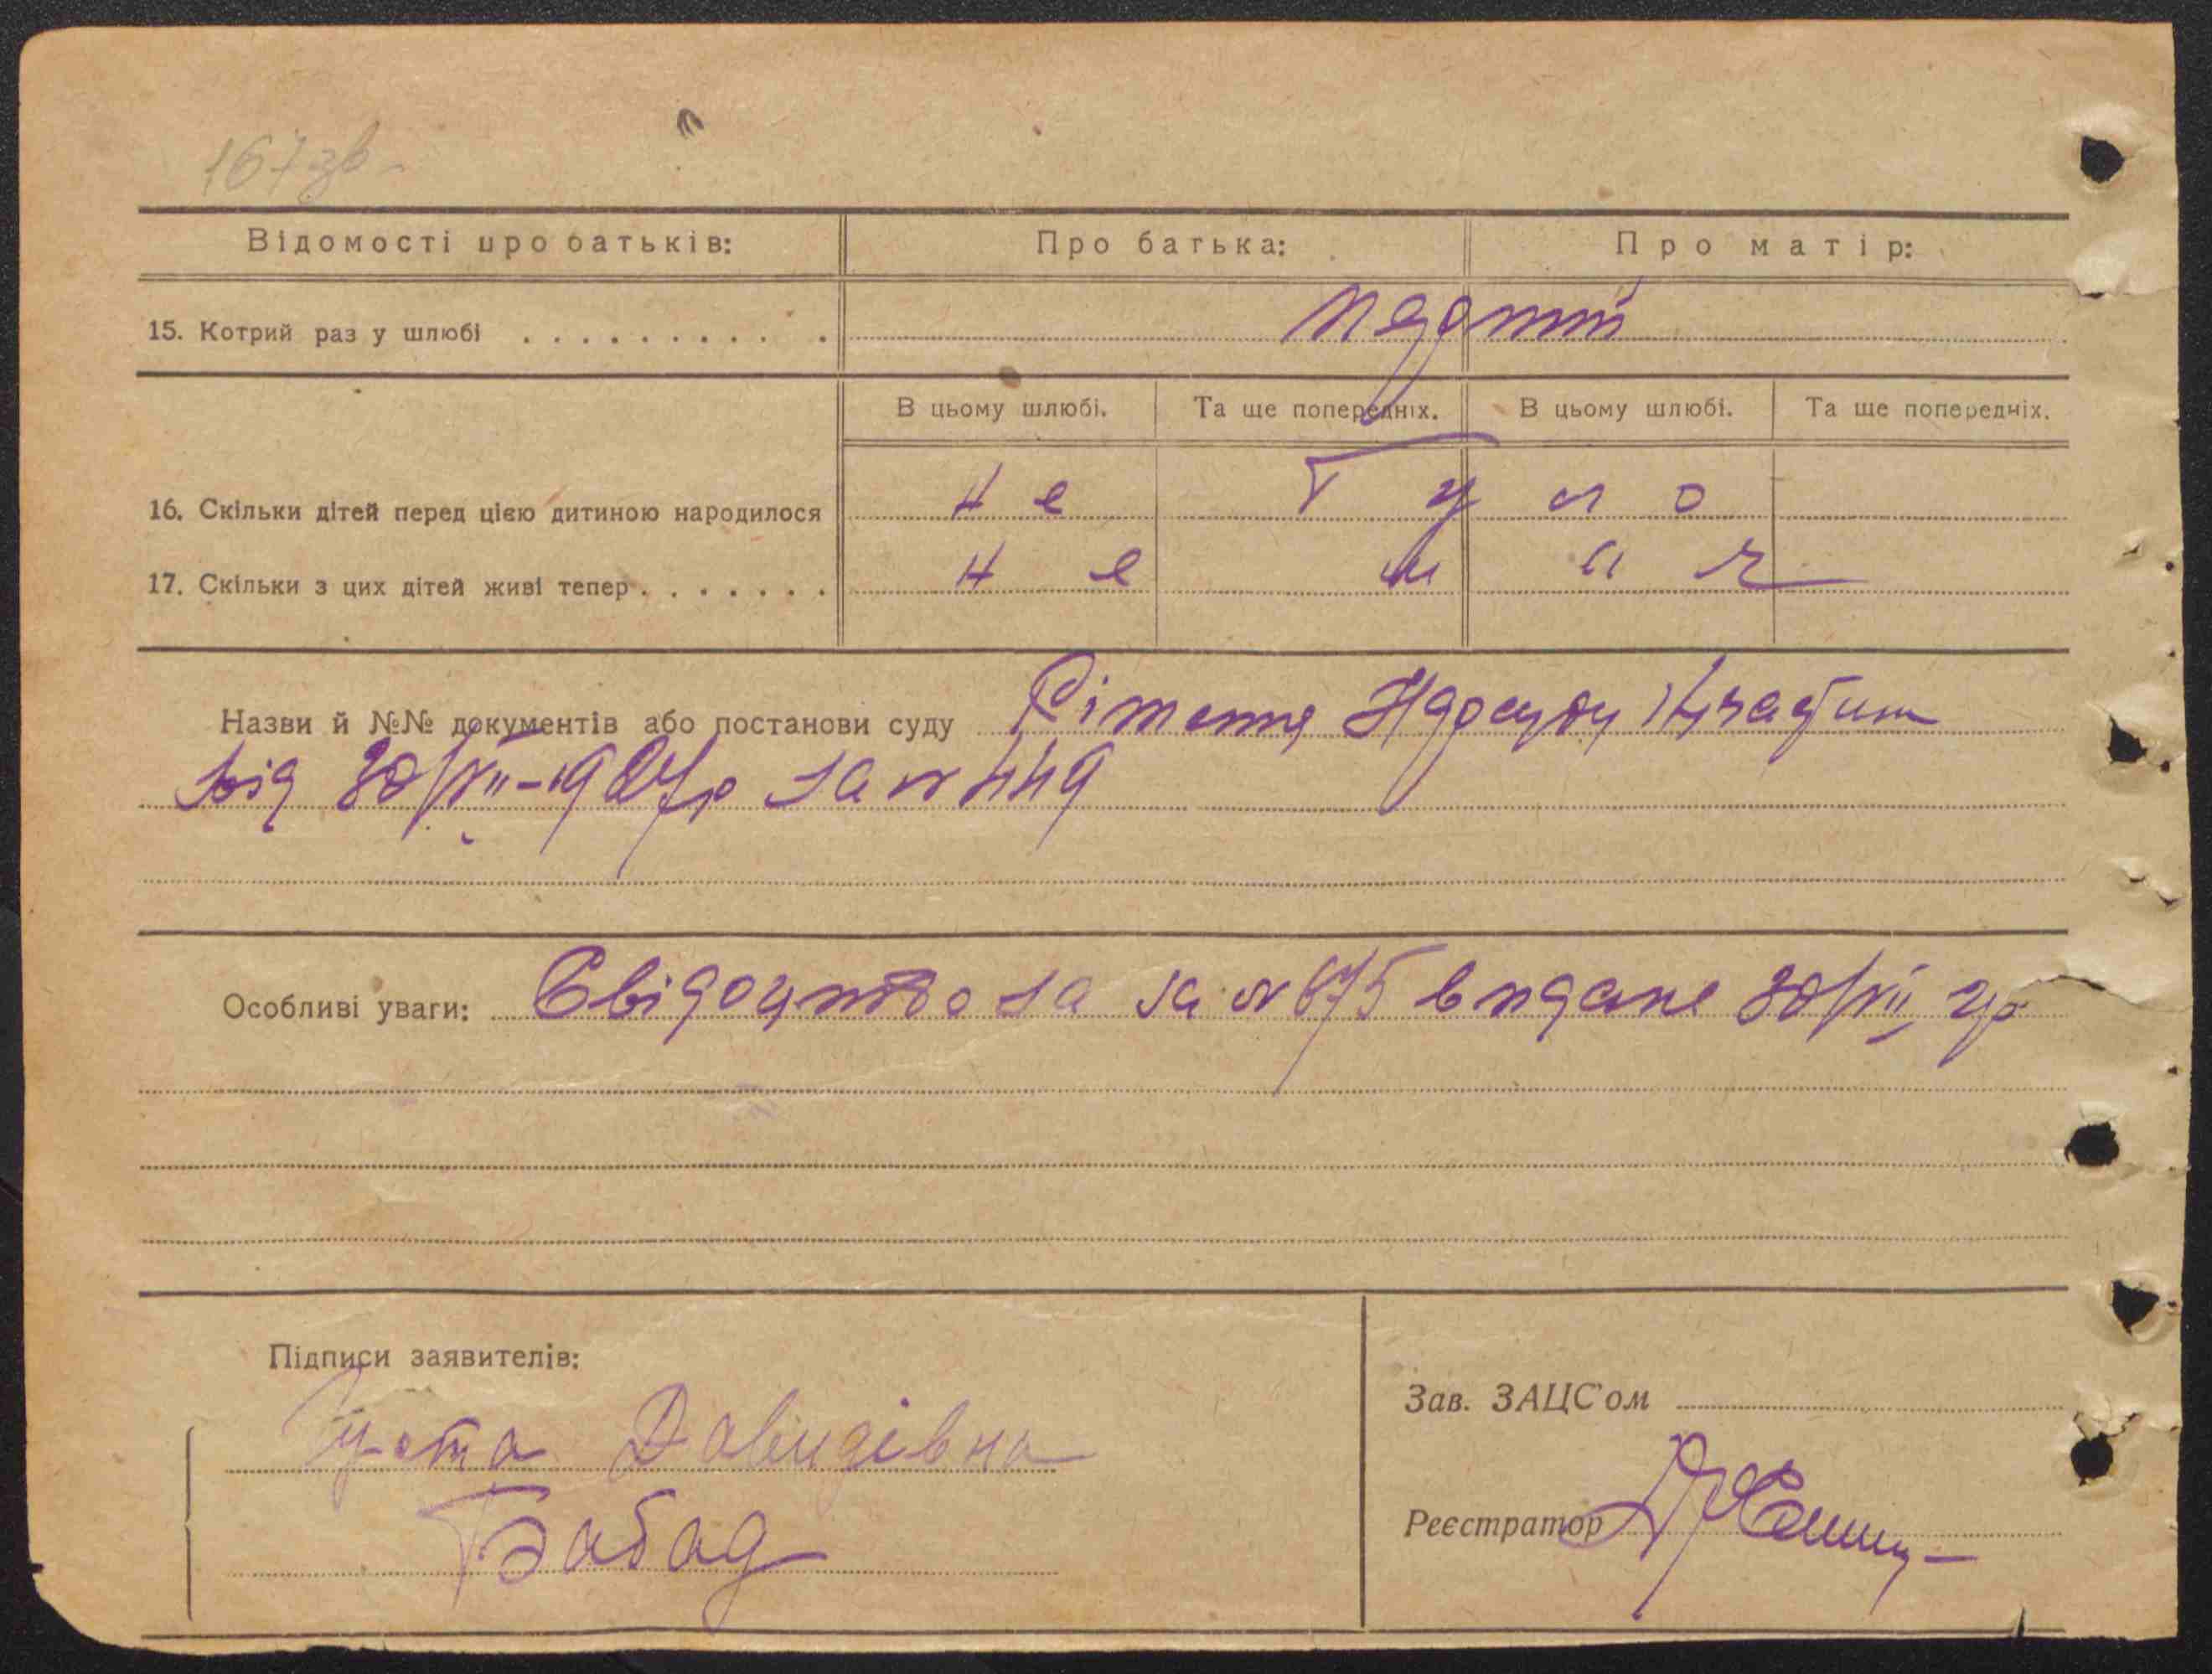 167 зв
Відомості про батьків: Про батька: Про матір:
15. Котрий раз у шлюбі
В цьому шлюбі. Та ще попередніх. В цьому шлюбі. Та ще попередніх.
16. Скільки дітей перед цією дитиною народилося не було
17. Скільки з цих дітей живі тепер не має
Назви й №№ документів або постанови суду Рішення Нарсуду
від 30/XII-1927р за №
Особливі уваги: Свідоцтво за за № 675 видане 30/XII
Підписи заявителів:
Густа Давидівна
Бабад
Зав. ЗАЦС'ом
Реєстратор